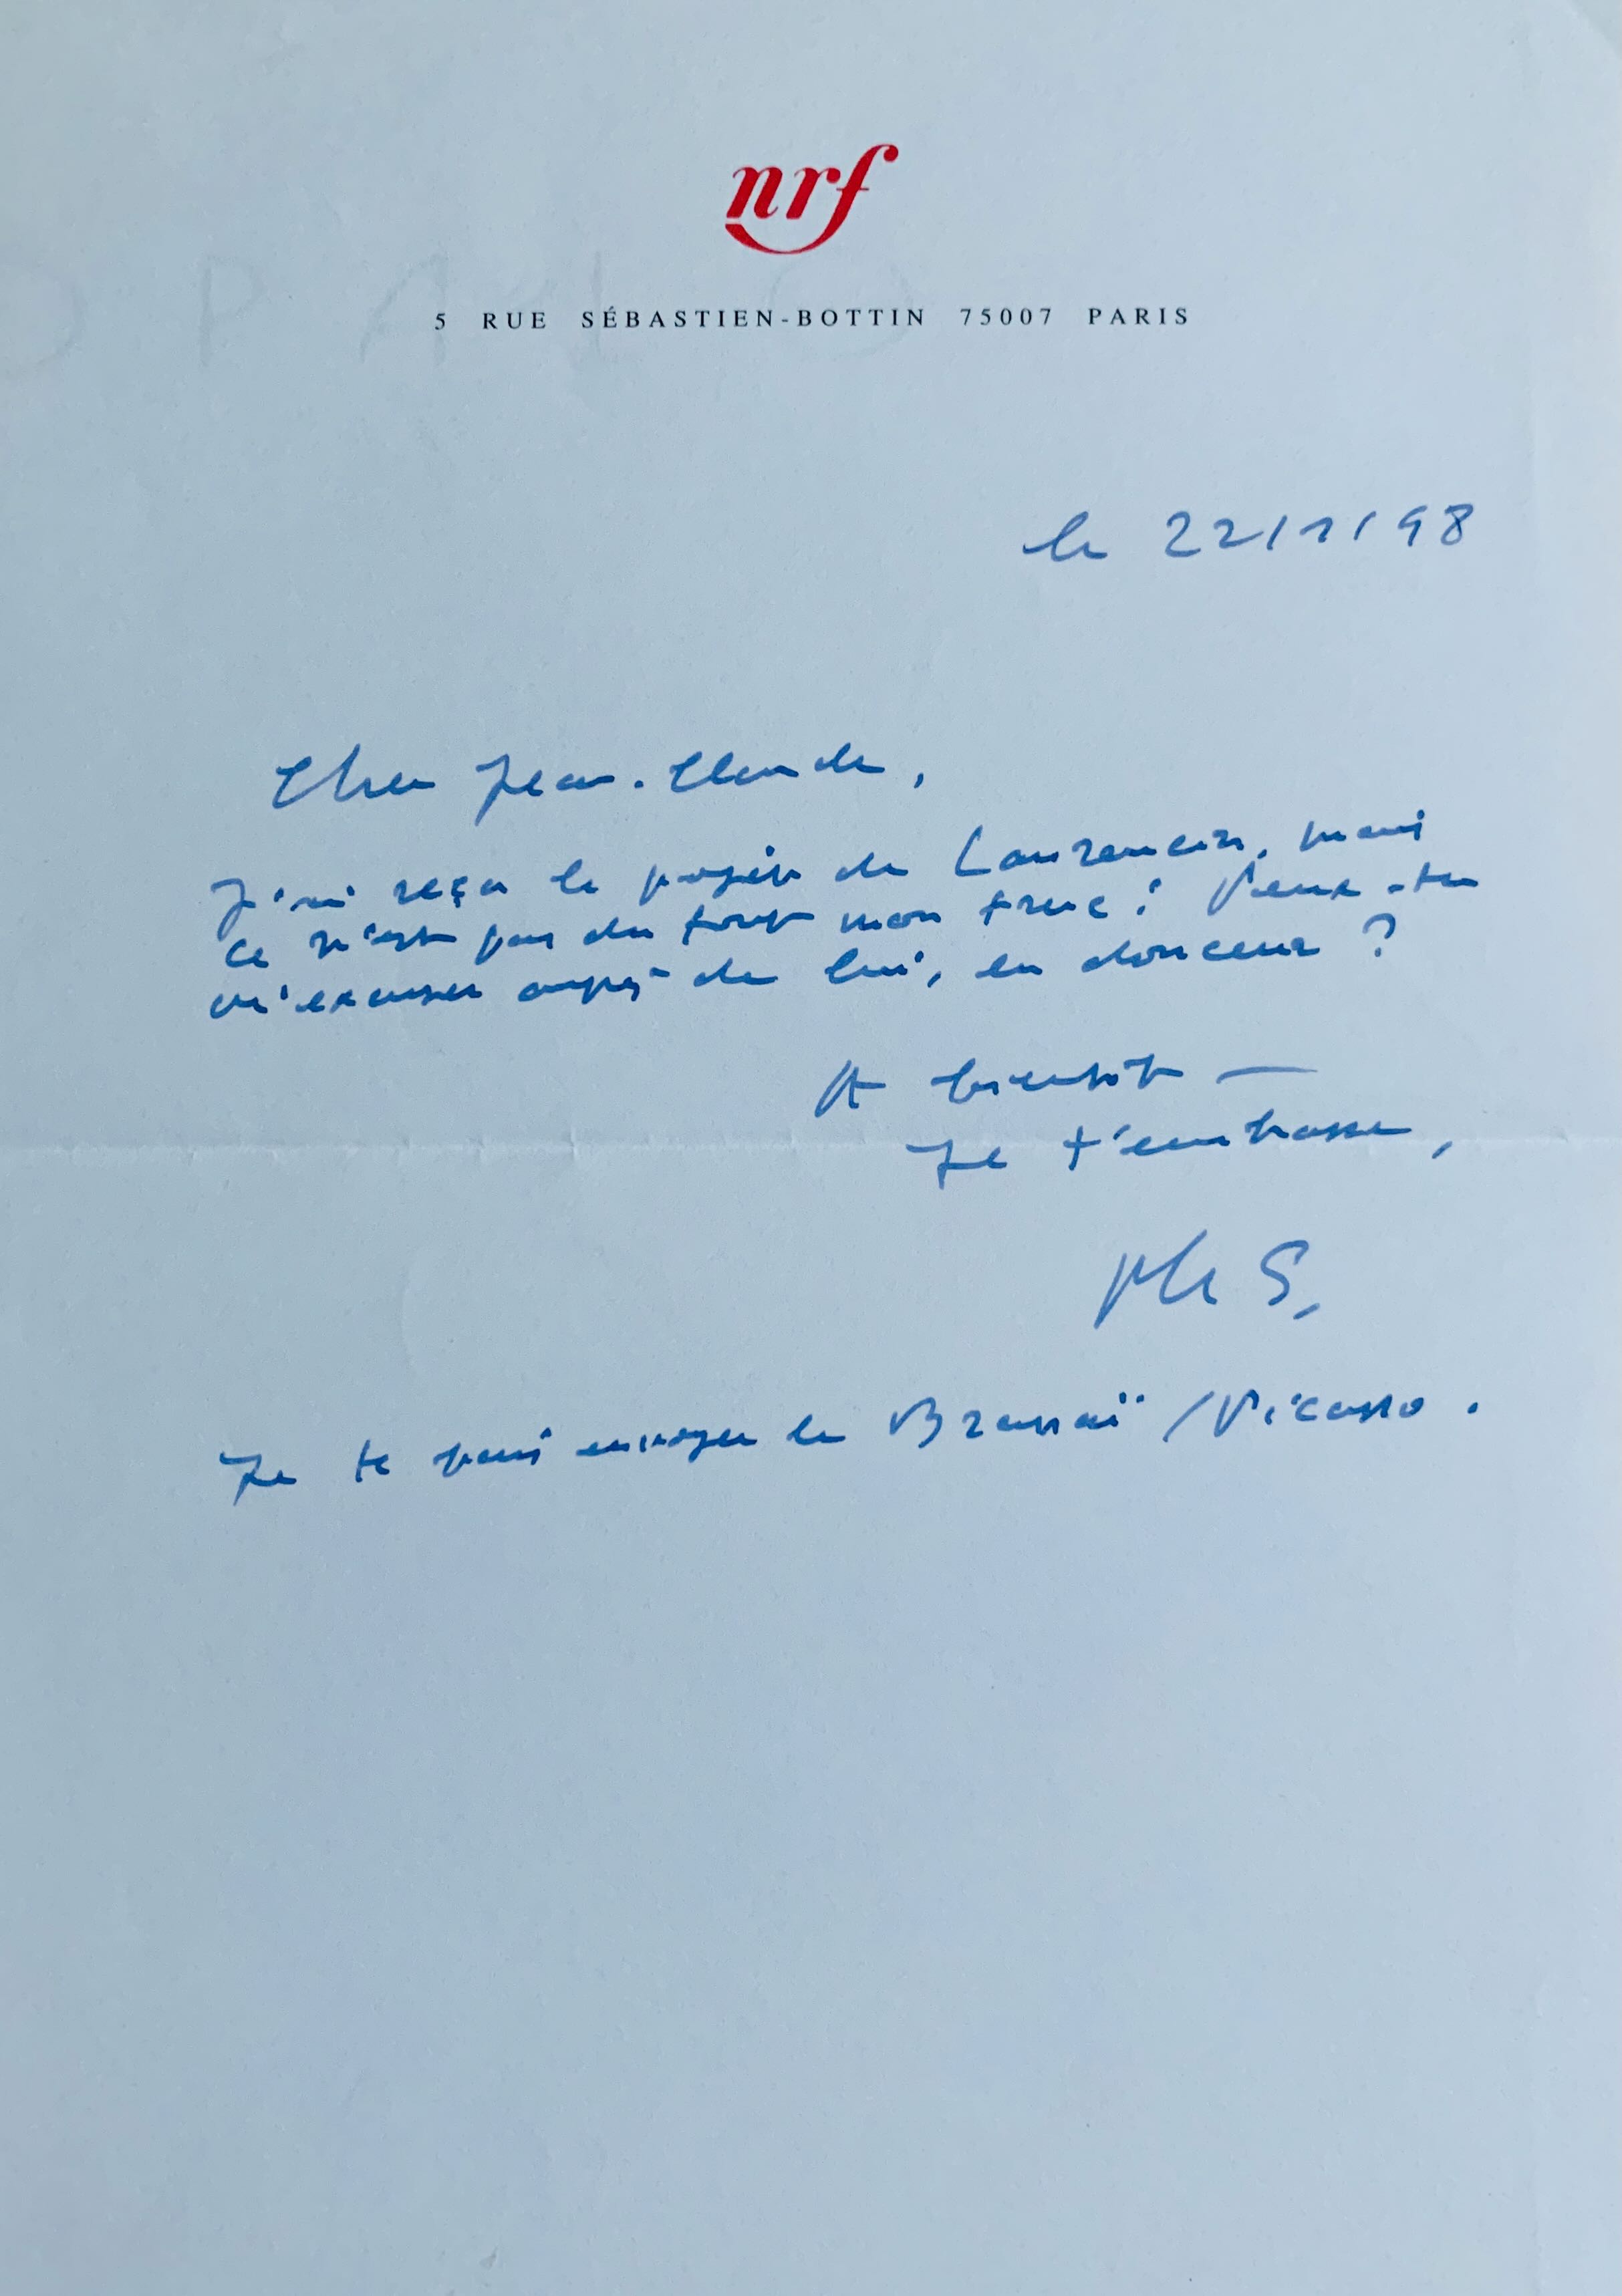 nrf
5 RUE SÉBASTIEN-BOTTIN 75007 PARIS
le 22/1/98
Cher Jean-Claude,
J'ai reçu le projet de Laurencin, mais
ce n'est pas du tout mon truc ! Peux-tu
m'excuser auprès de lui, en douceur ?
A bientôt —
Je t'embrasse,
Ph S.
Je te fais envoyer le Brassaï / Picasso.